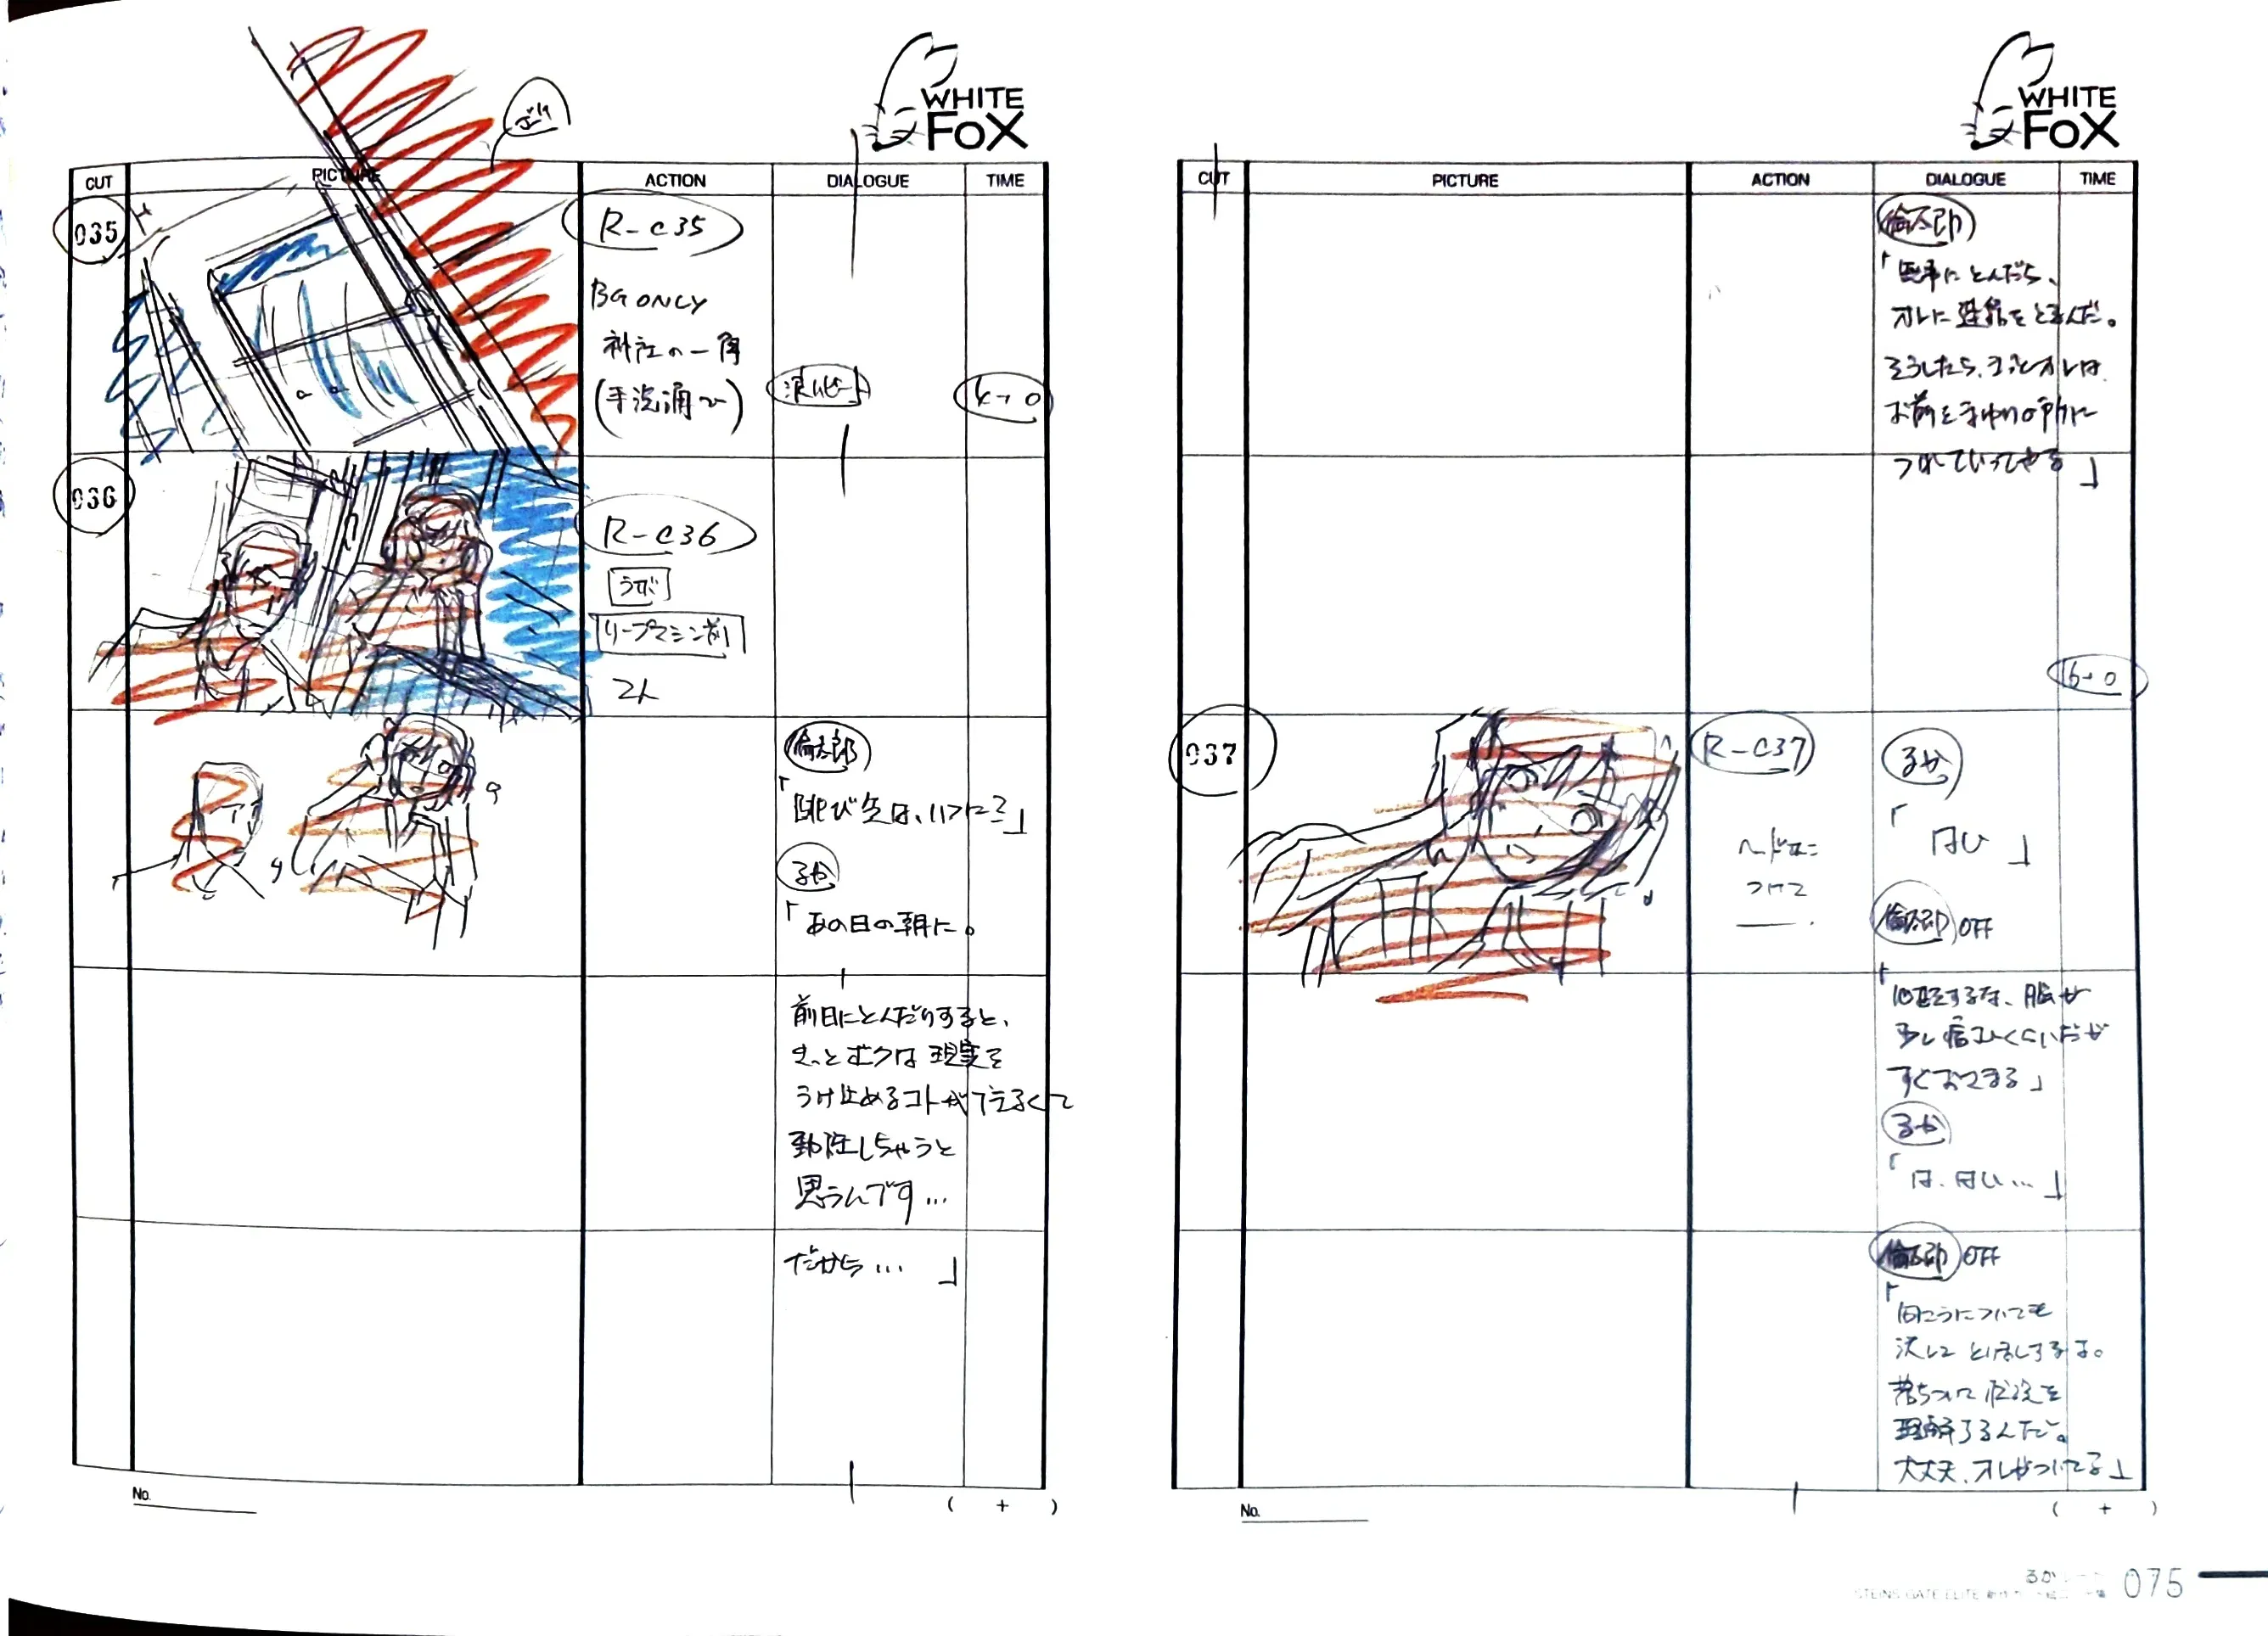 WHITE
FOX
CUT
PICTURE
ACTION
DIALOGUE
TIME
035
R-C35
BG ONLY
神社の一角
4+0
036
R-C36
ラボ
リープマシン前
2人
倫太郎
「跳び先は、いつに?」
るか
「あの日の朝に。
前日にとんだりすると、
きっとボクは現実を
うけ止めるコトが
動揺しちゃうと
思うんです…
だから… 」
No.
( + )
WHITE
FOX
CUT
PICTURE
ACTION
DIALOGUE
TIME
倫太郎
「無事にとんだら、
オレに連絡をとるんだ。
そうしたら、きっとオレは
お前をまゆりの所に
つれていってやる 」
6+0
037
R-C37
るか
「 はい 」
つけて
倫太郎 OFF
「心配するな、脳が
少し痛いくらいだが
すぐおさまる」
るか
「は、はい…」
倫太郎 OFF
「向こうについても
決して するな。
落ちついて 状況を
理解するんだ。
大丈夫、オレがついてる」
No.
( + )
るか
STEINS GATE ELITE
075